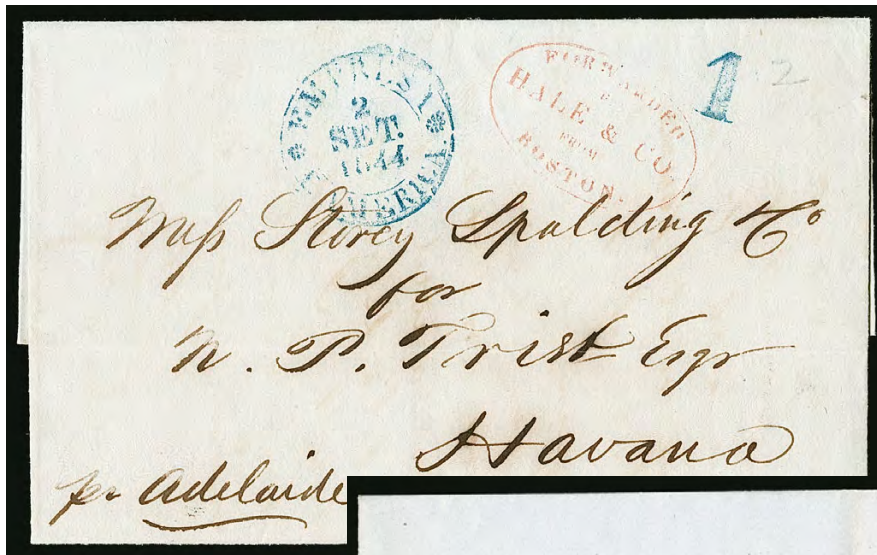 EMPRESA
2
SET.
1844
AMERICA.
FORWARDED
HALE & CO.
FROM
BOSTON.
1
2
Mess Storey Spalding & Co
for
N. P. Trist Esqr
Havana
pr Adelaide